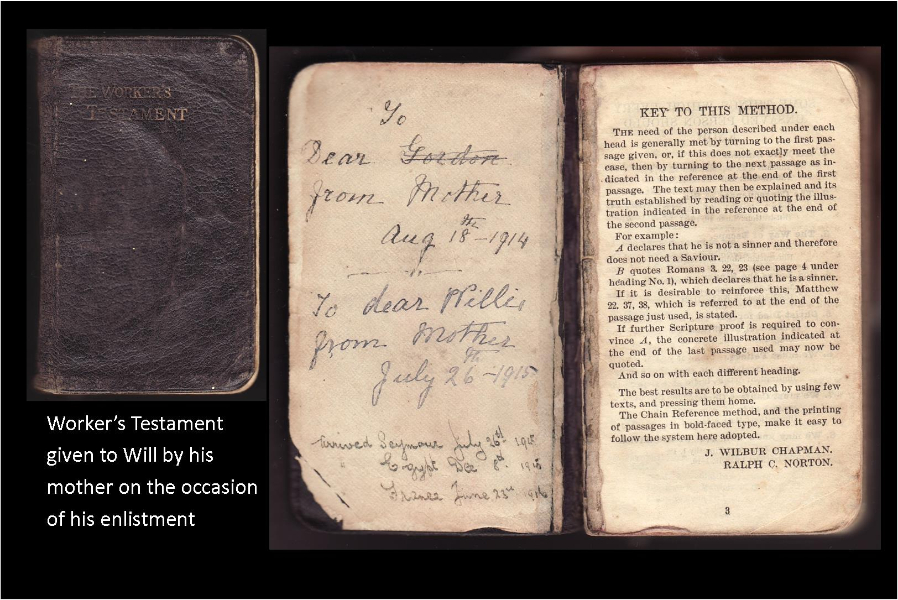 THE WORKER'S
TESTAMENT
Worker's Testament
given to Will by his
mother on the occasion
of his enlistment
To
Dear Gordon
from Mother
Aug 18th - 1914
To dear Willie
from Mother
July 26th - 1915
arrived Seymour July 26st 1915
" Egypt Dec 8th 1915
" France June 23rd 1916
KEY TO THIS METHOD.
THE need of the person described under each
head is generally met by turning to the first pas-
sage given, or, if this does not exactly meet the
case, then by turning to the next passage as in-
dicated in the reference at the end of the first
passage. The text may then be explained and its
truth established by reading or quoting the illus-
tration indicated in the reference at the end of
the second passage.
For example:
A declares that he is not a sinner and therefore
does not need a Saviour.
B quotes Romans 3, 22, 23 (see page 4 under
heading No. 1), which declares that he is a sinner.
If it is desirable to reinforce this, Matthew
22, 37, 38, which is referred to at the end of the
passage just used, is stated.
If further Scripture proof is required to con-
vince A, the concrete illustration indicated at
the end of the last passage used may now be
quoted.
And so on with each different heading.
The best results are to be obtained by using few
texts, and pressing them home.
The Chain Reference method, and the printing
of passages in bold-faced type, make it easy to
follow the system here adopted.
J. WILBUR CHAPMAN.
RALPH C. NORTON.
3